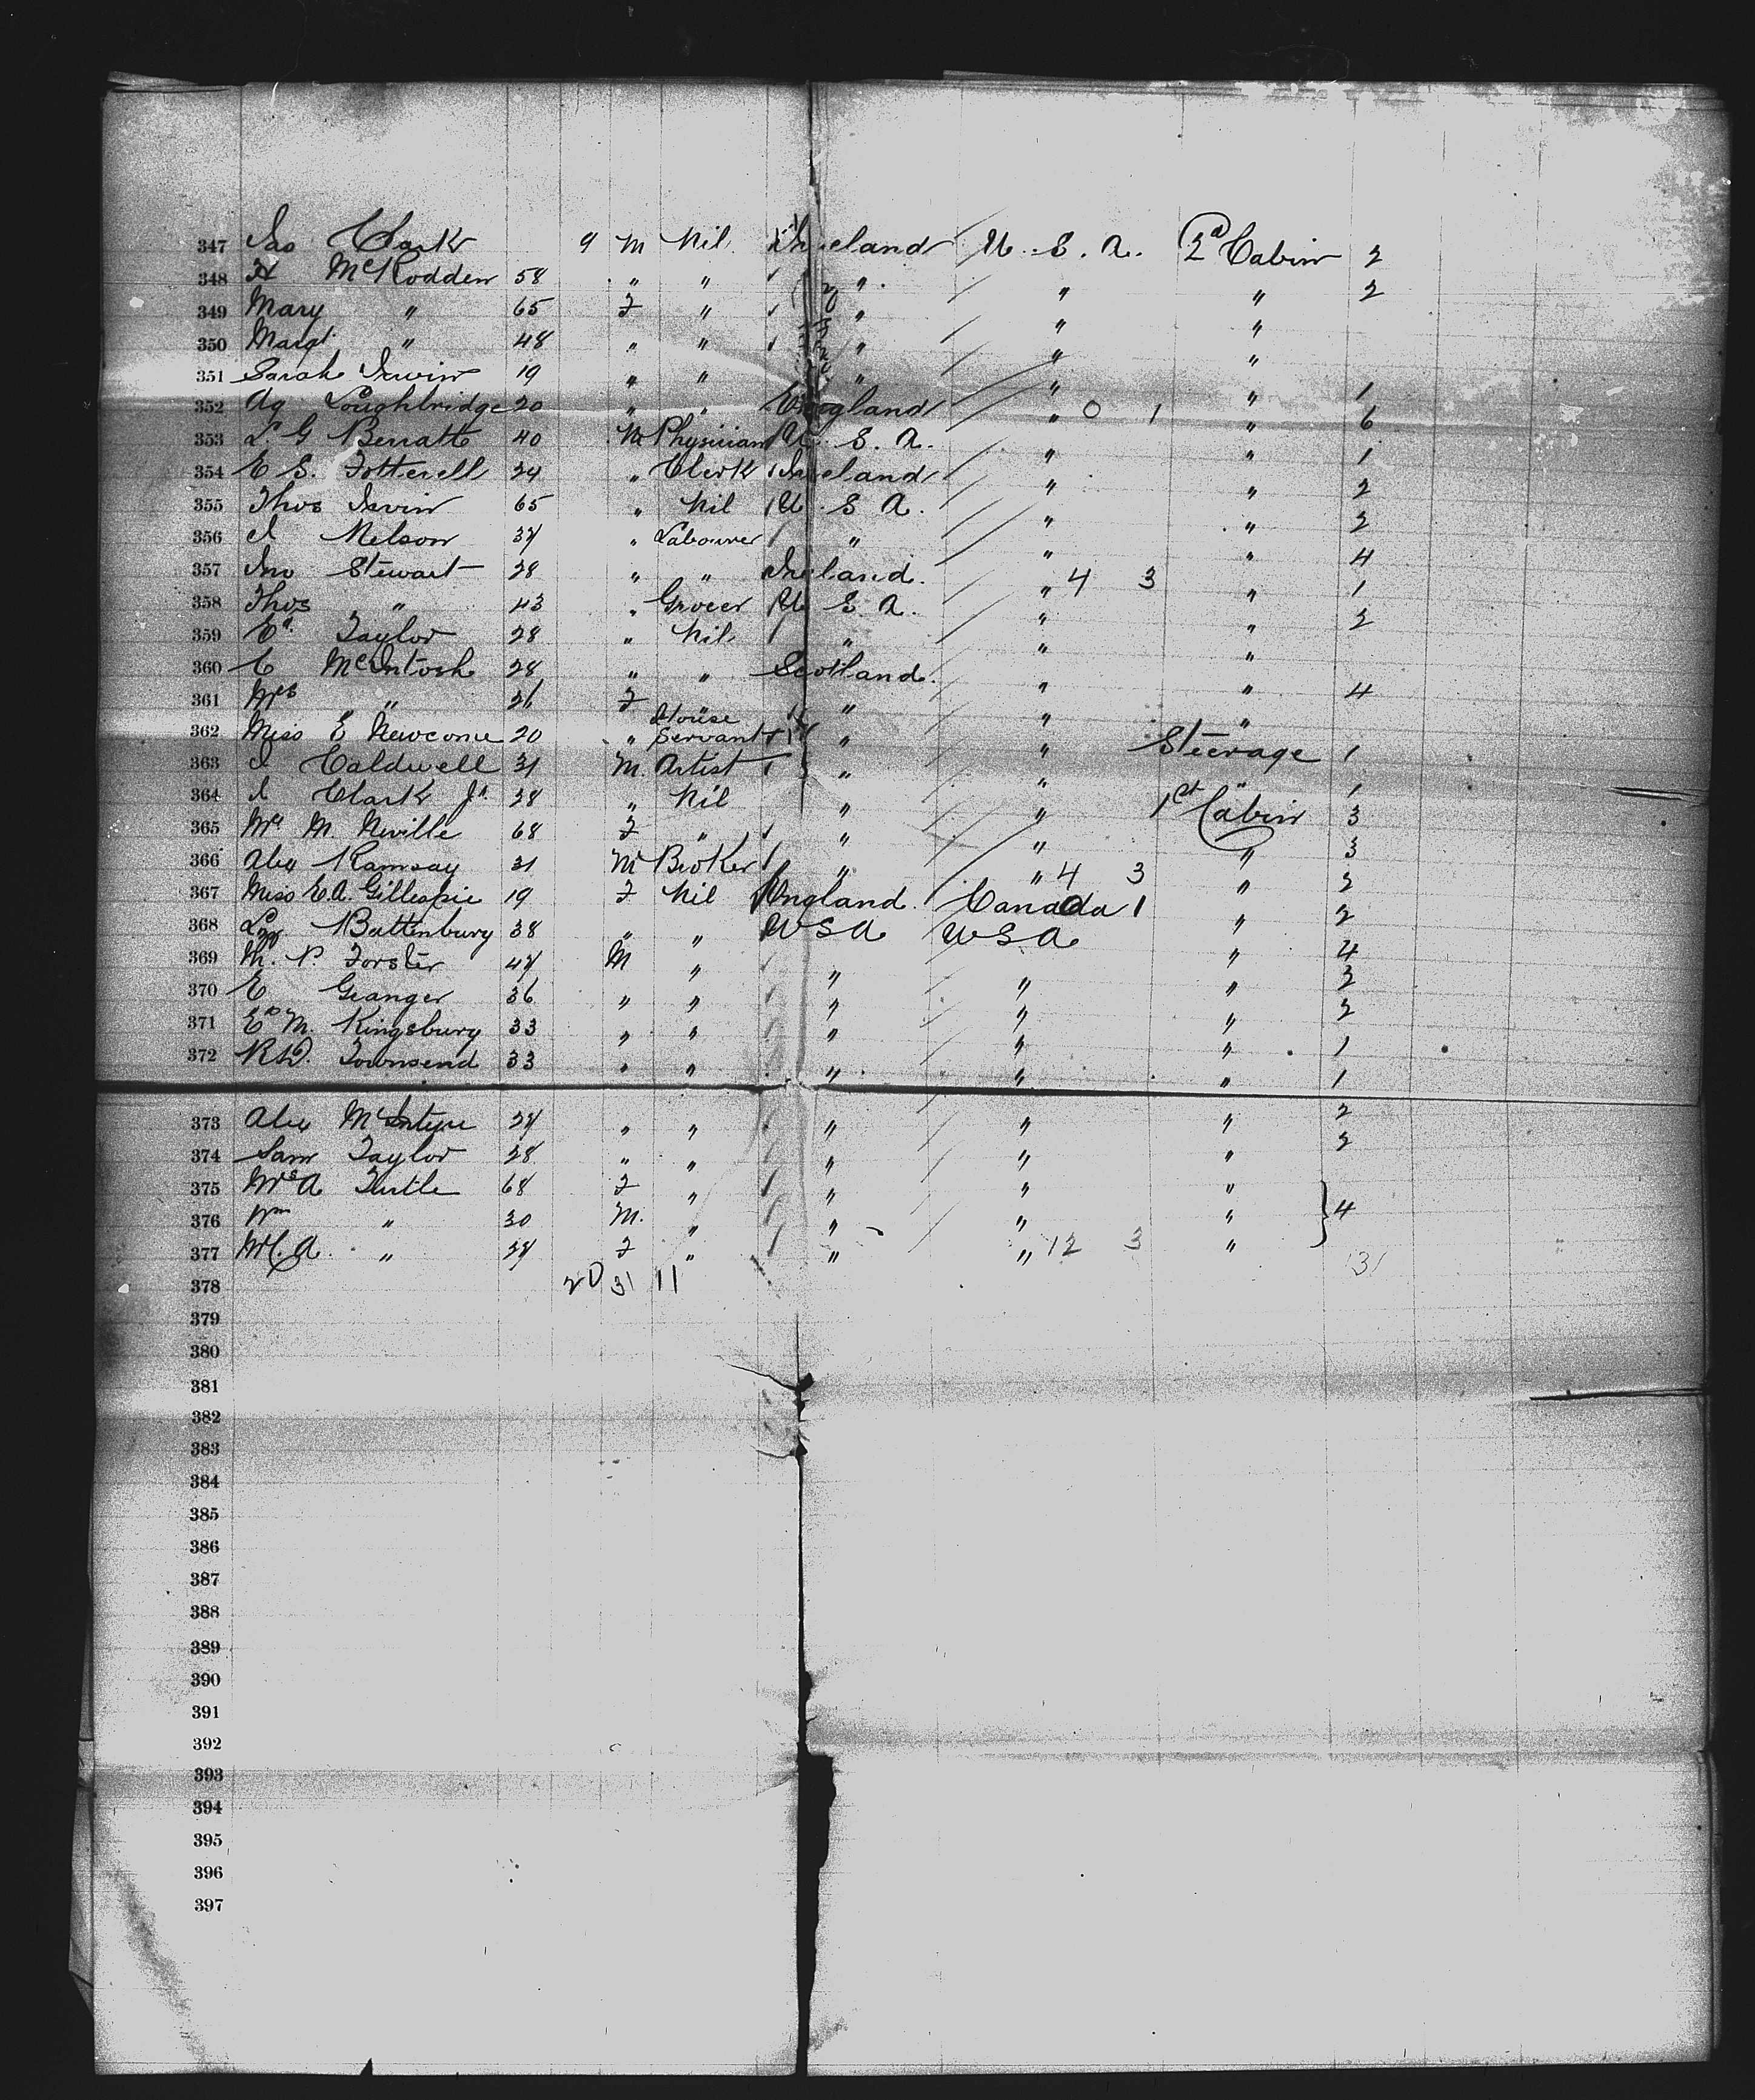 347 Jas Clark 9 M Nil Ireland / U. S. A. 2d Cabin 2
348 H McRodden 58 " " " / " " 2
349 Mary " 65 F " " / " "
350 Margt " 48 " " " / " "
351 Sarah Irwin 19 " " " / " " 1
352 Ag Loughbridge 20 " " England / " 0 1 " 6
353 L. G 40 M Physician U. S. A. / " " 1
354 E S. Fotterell 24 " Clerk Ireland / " " 2
355 Thos Irvin 65 " Nil U. S A. / " " 2
356 J Nelson 34 " Labourer " / " " 4
357 Jno Stewart 28 " " Ireland. / " 4 3 " 1
358 Thos " 43 " Grocer U S A. / " " 2
359 Ed. Taylor 28 " Nil " / " "
360 C McIntosh 28 " " Scotland. / " " 4
361 Mrs " 26 F " " / " "
362 Miss E Newcome 20 " House Servant " / " Steerage 1
363 J Caldwell 31 M. Artist " / " " 1
364 J Clark Jr. 38 " Nil " / " 1st Cabin 3
365 Mrs M. Neville 68 F " " / " " 3
366 Alex Ramsay 31 M Broker " / " 4 3 " 2
367 Miss E. A. Gillespie 19 F Nil England. Canada 1 " 2
368 Battenbury 38 " " U S A U S A " 4
369 P. Forster 44 M " " / " " 3
370 E Granger 36 " " " / " " 2
371 Ed M. Kingsbury 33 " " " / " " 1
372 Townsend 33 " " " / " " 1
373 Alex McIntyre 24 " " " / " " 2
374 Sam Taylor 28 " " " / " " 2
375 Mrs A Tuttle 68 F " " / " "
376 Wm " 30 M. " " / " " } 4
377 M. A. " 24 F " " " 12 3 " 31
378 20 31 11
379
380
381
382
383
384
385
386
387
388
389
390
391
392
393
394
395
396
397